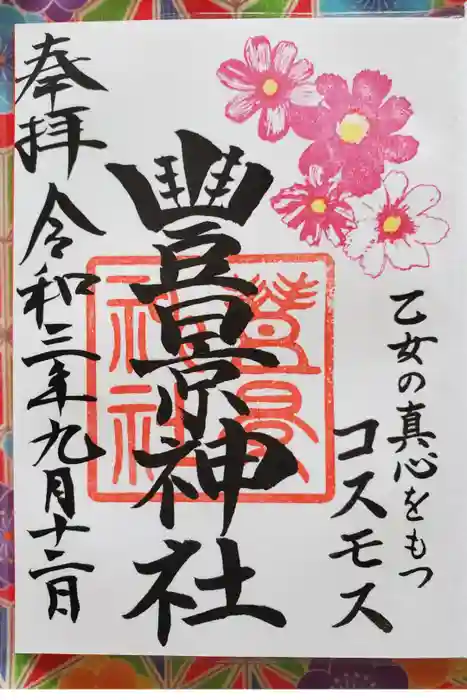 乙女の真心をもつ
コスモス
豐景神社
豐景
神社
奉拝
令和三年九月十二日